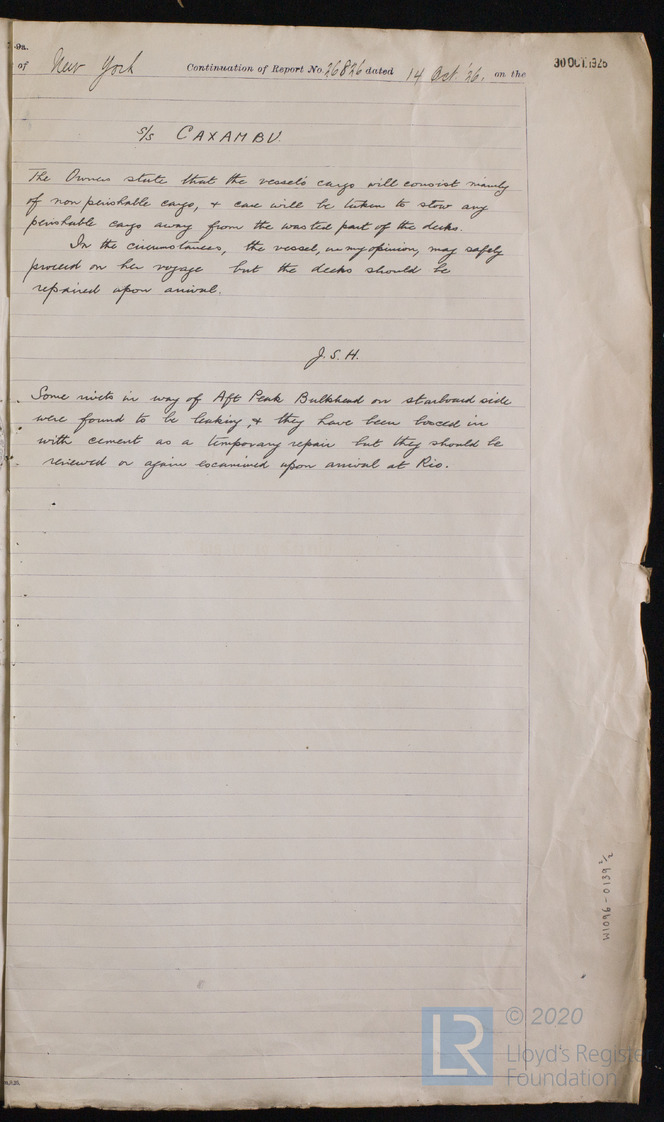 9a.
of New York Continuation of Report No. 26826 dated 14 Oct. '26. on the
30 OCT. 1926
S/S CAXAMBU
The Owners state that the vessel's cargo will consist mainly
of non perishable cargo, & care will be taken to stow any
perishable cargo away from the wasted part of the decks.
In the circumstances, the vessel, in my opinion, may safely
proceed on her voyage but the decks should be
repaired upon arrival.
J. S. H.
Some rivets in way of Aft Peak Bulkhead on starboard side
were found to be leaking, & they have been boxed in
with cement as a temporary repair but they should be
renewed or again examined upon arrival at Rio.
W1096-0139 2/2
LR
© 2020
Lloyd's Register
Foundation